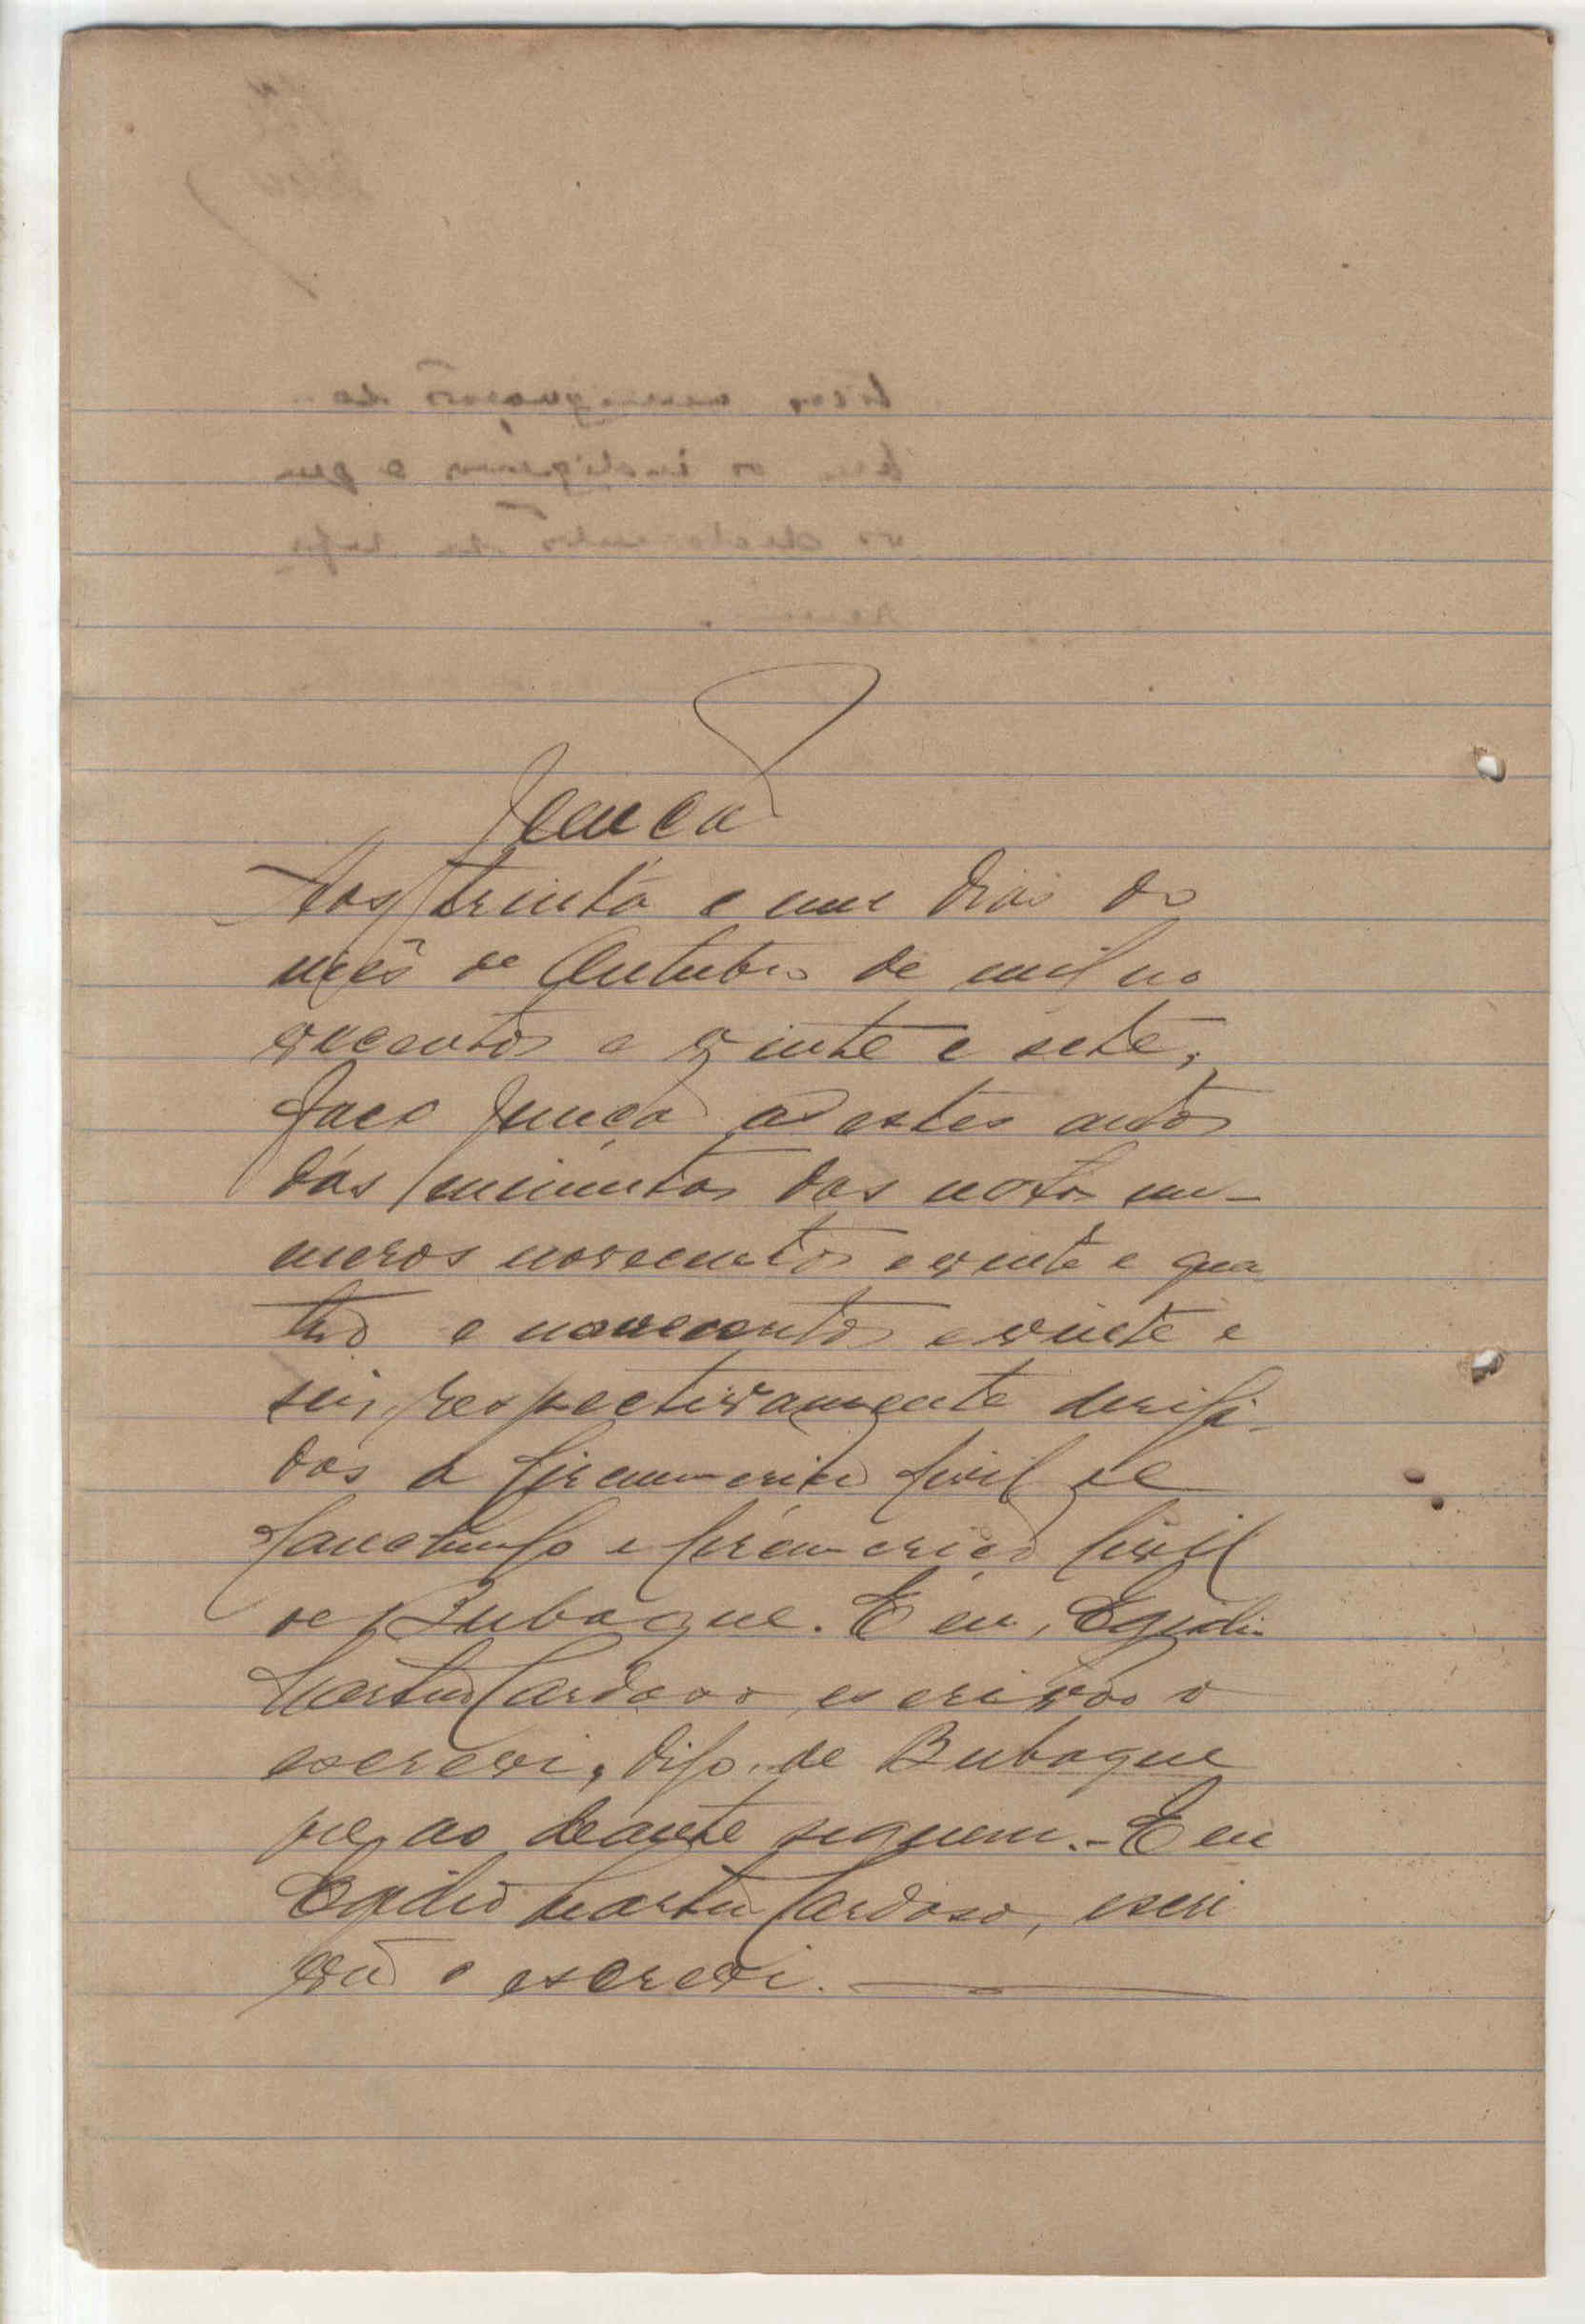 Junção
Aos trinta e um dias do
mês de Outubro de mil no
vecentos e vinte e sete,
faço junção a estes autos
das minutas das notas nu-
meros novecentos e vinte e qua
tro e novecentos e vinte e
seis, respectivamente dirigi-
das á Circunscrição Civil de
Canchungo e Circunscrição Civil
de Bubaque. E eu, Egidio
Martins Cardoso, escrivão o
escrevi, digo, de Bubaque
que ao deante seguem.- E eu
Egidio Martins Cardoso, escri
vão o escrevi.